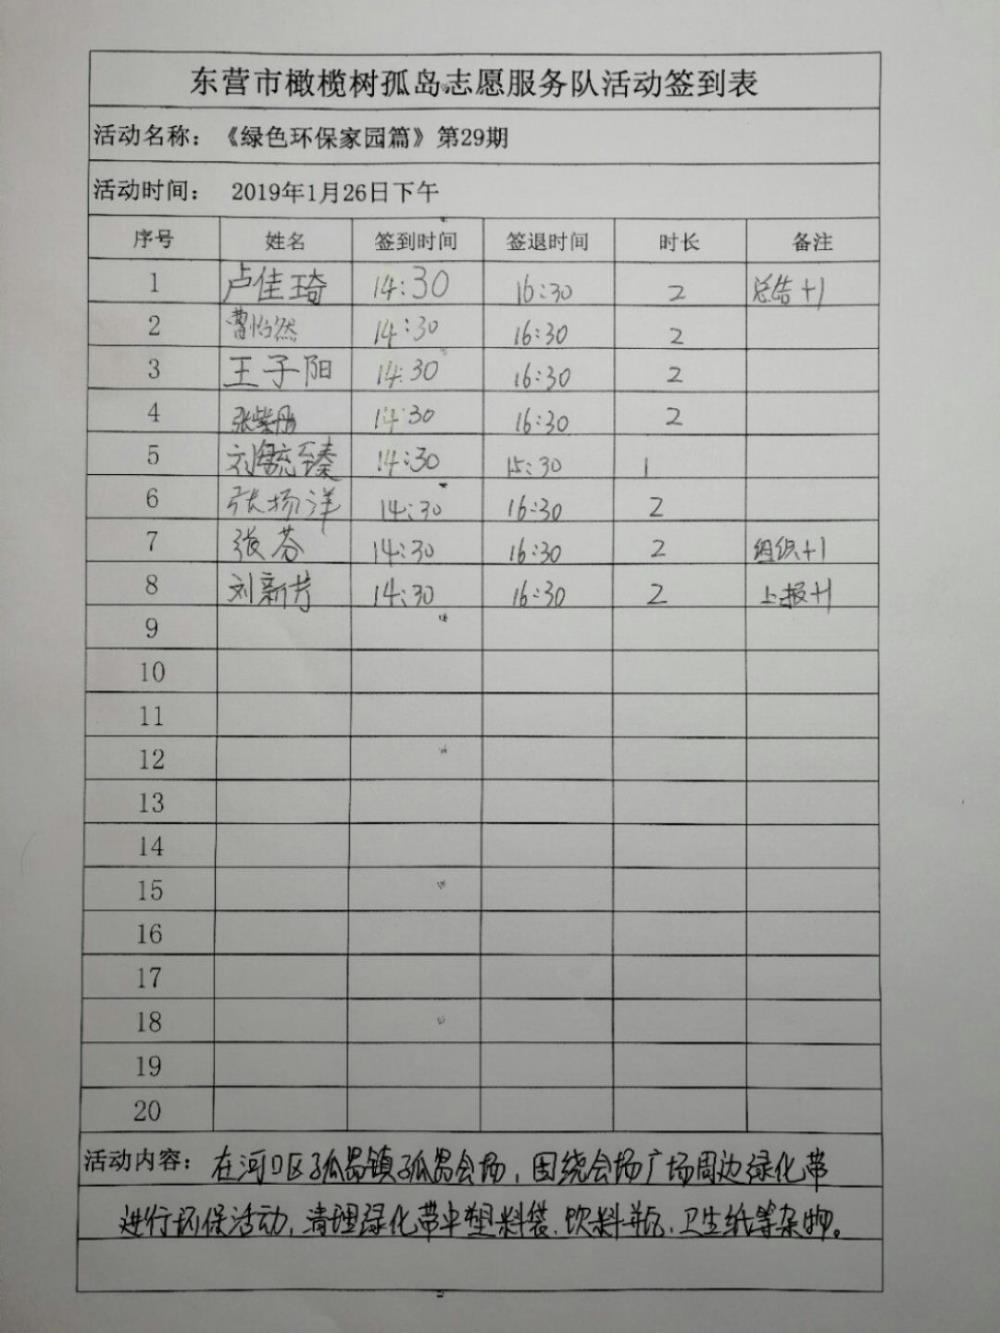 东营市橄榄树孤岛志愿服务队活动签到表
活动名称：《绿色环保家园篇》第29期
活动时间： 2019年1月26日下午
序号 姓名 签到时间 签退时间 时长 备注
1 卢佳琦 14:30 16:30 2 总结+1
2 曹怡然 14:30 16:30 2
3 王子阳 14:30 16:30 2
4 张紫丹 14:30 16:30 2
5 刘毓臻 14:30 15:30 1
6 张扬洋 14:30 16:30 2
7 张芬 14:30 16:30 2 组织+1
8 刘新芳 14:30 16:30 2 上报+1
9
10
11
12
13
14
15
16
17
18
19
20
活动内容：在河口区孤岛镇孤岛会场，围绕会场广场周边绿化带
进行环保活动，清理绿化带中塑料袋、饮料瓶、卫生纸等杂物。